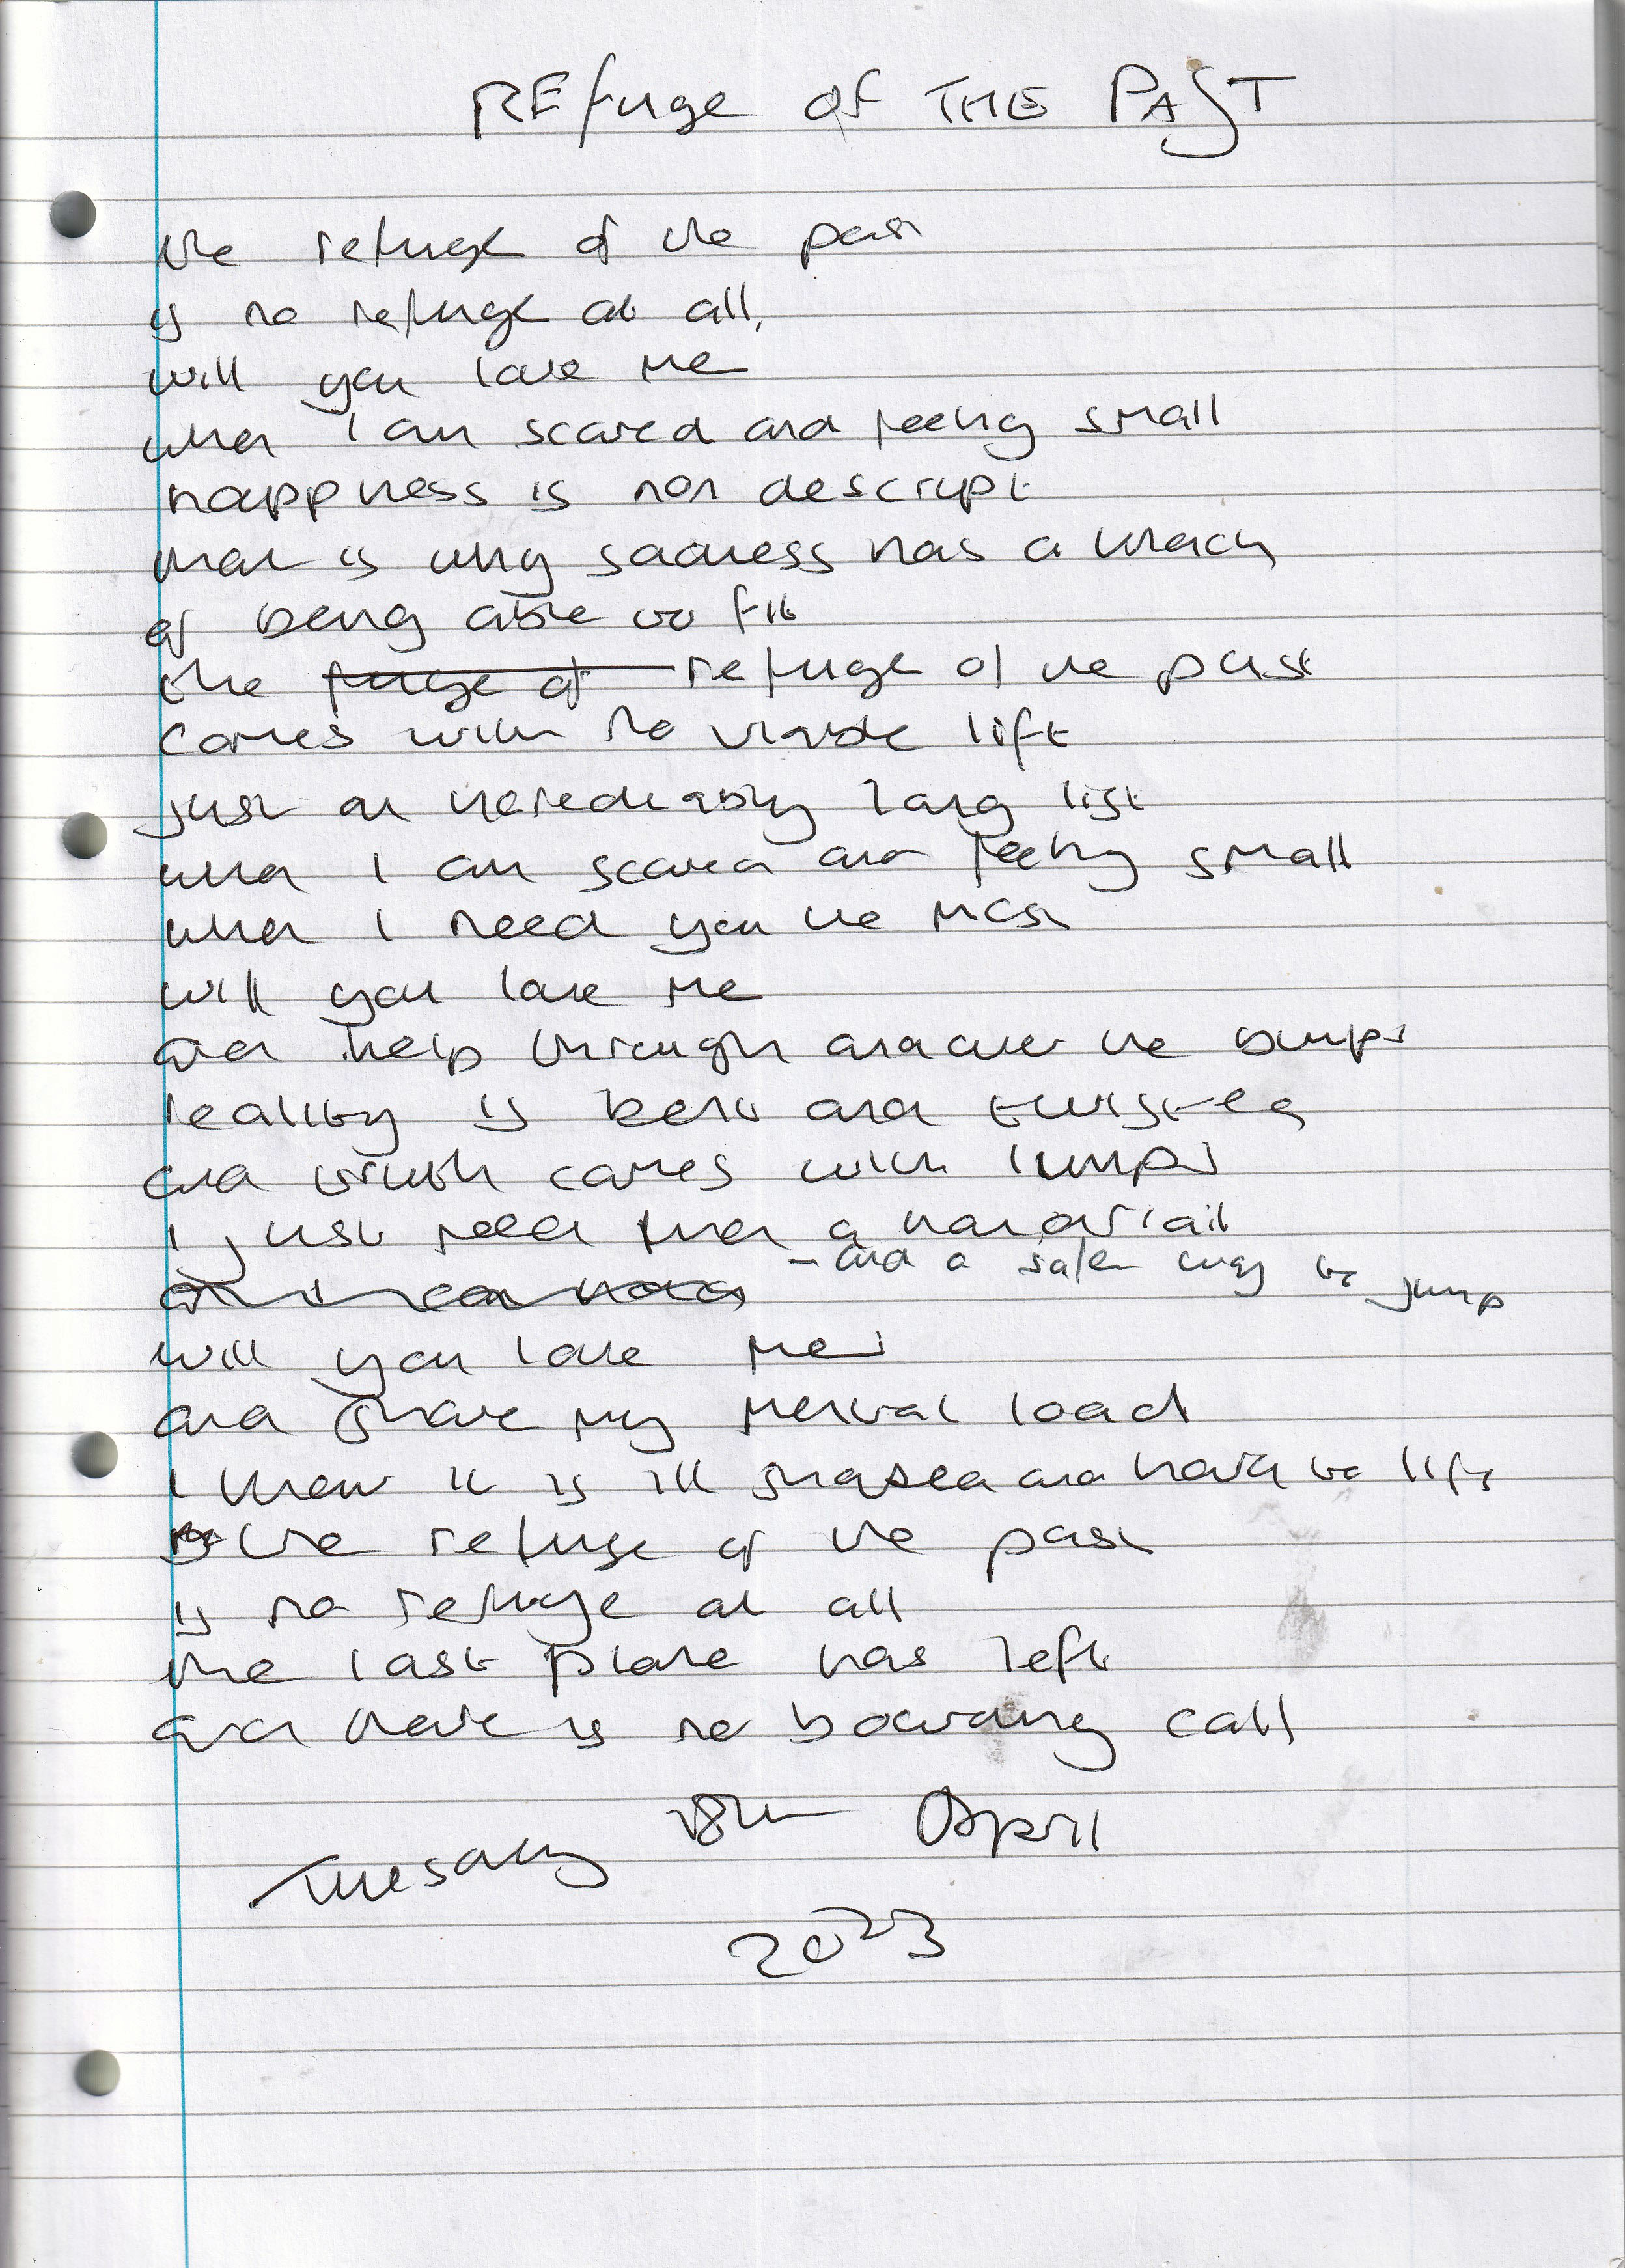 REfuge OF THE PAST
the refuge of the past
is no refuge at all,
will you love me
when I am scared and feeling small
happness is non descript
that is why sadness has a knack
of being able to fit
the refuge of the past
comes with no viable lift
just an incredibly long list
when I am scared and feeling small
when I need you the most
will you love me
and help through and over the bumps
reality is bent and twisted
and truth comes with lumps
I just need a hand rail
- and a safer way to jump
will you love me
and share my mental load
I know it is ill shaped and hard to lift
the refuge of the past
is no refuge at all
the last plane has left
and there is no boarding call
Tuesday 18th April
2023